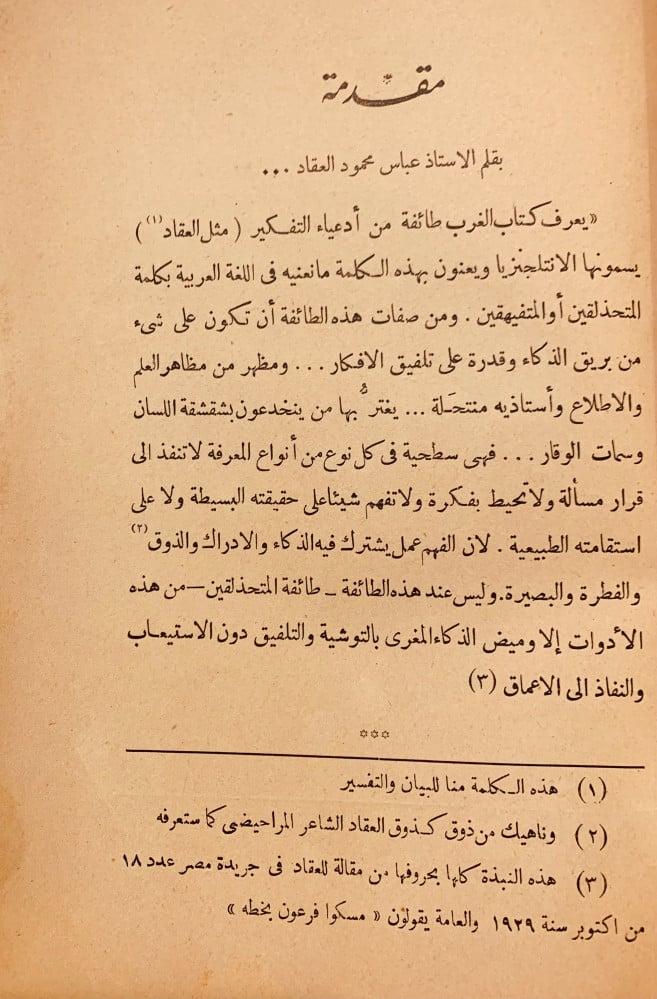 مقدمة
بقلم الاستاذ عباس محمود العقاد ...
«يعرف كتاب الغرب طائفة من أدعياء التفكير ( مثل العقاد (١) )
يسمونها الانتلجنزيا ويعنون بهذه الكلمة ما نعنيه فى اللغة العربية بكلمة
المتحذلقين أو المتفيهقين . ومن صفات هذه الطائفة أن تكون على شىء
من بريق الذكاء وقدرة على تلفيق الافكار ... ومظهر من مظاهر العلم
والاطلاع وأستاذيه منتحَلة ... يغترُّ بها من ينخدعون بشقشقة اللسان
وسمات الوقار ... فهى سطحية فى كل نوع من أنواع المعرفة لا تنفذ الى
قرار مسألة ولا تحيط بفكرة ولا تفهم شيئا على حقيقته البسيطة ولا على
استقامته الطبيعية . لان الفهم عمل يشترك فيه الذكاء والادراك والذوق (٢)
والفطرة والبصيرة. وليس عند هذه الطائفة – طائفة المتحذلقين – من هذه
الأدوات إلا وميض الذكاء المغرى بالتوشية والتلفيق دون الاستيعاب
والنفاذ الى الاعماق (٣)
***
(١) هذه الكلمة منا للبيان والتفسير
(٢) وناهيك من ذوق كذوق العقاد الشاعر المراحيضى كما ستعرفه
(٣) هذه النبذة كلها بحروفها من مقالة للعقاد فى جريدة مصر عدد ١٨
من اكتوبر سنة ١٩٢٩ والعامة يقولون « مسكوا فرعون بخطه »